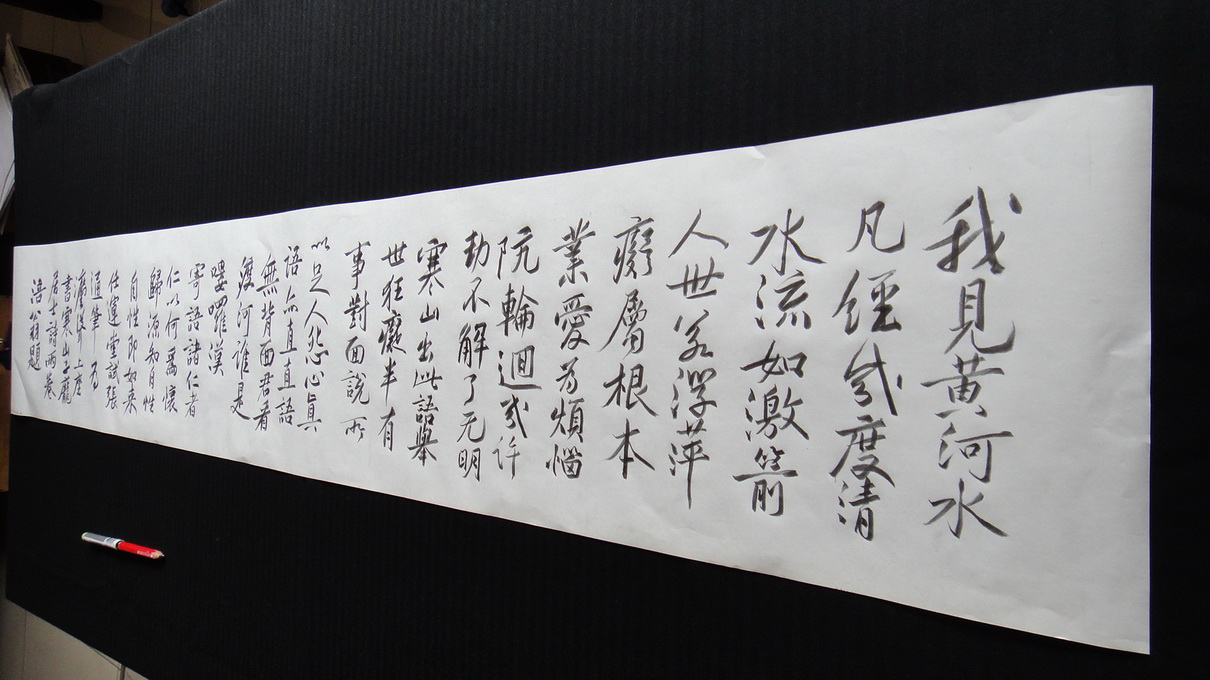 我見黄河水
凡經幾度清
水流如激箭
人世若浮萍
癡屬根本
業愛為煩惱
阬輪迴幾許
劫不解了无明
寒山出此語舉
世狂癡半有
事對面說所
以足人怨心真
語亦直直語
無背面君看
渡河誰是
嘍囉漢
寄語諸仁者
仁以何為懷
歸源知自性
自性即如來
任運堂試張
通筆為
上座
書寒山子龐
居士詩兩卷
涪翁題